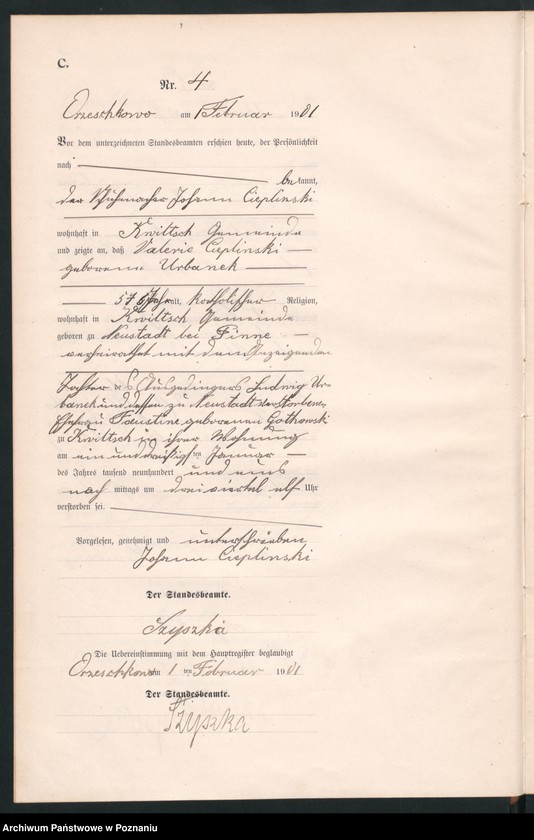 C.
Nr. 4
Orzeschkowo am 1 Februar 1901
Vor dem unterzeichneten Standesbeamten erschien heute, der Persönlichkeit
nach
be kannt,
der Schuhmacher Johann Cieplinski
wohnhaft in Kwiltsch Gemeinde
und zeigte an, daß Valerie Cieplinski
geborene Urbanek
57 Jahr alt, katholischer Religion,
wohnhaft in Kwiltsch Gemeinde
geboren zu Neustadt bei Pinne
verheirathet mit dem Anzeigenden
Tochter des Ausgedingers Ludwig Ur-
banek und dessen zu Neustadt verstorbenen
Ehefrau Faustine geborenen Gotkowski
zu Kwiltsch in ihrer Wohnung
am ein und dreißigsten Januar
des Jahres tausend neunhundert und eins
nach mittags um dreiviertel elf Uhr
verstorben sei.
Vorgelesen, genehmigt und unterschrieben
Johann Cieplinski
Der Standesbeamte.
Szyszka
Die Uebereinstimmung mit dem Hauptregister beglaubigt
Orzeschkowo am 1 ten Februar 1901
Der Standesbeamte.
Szyszka
Archiwum Państwowe w Poznaniu